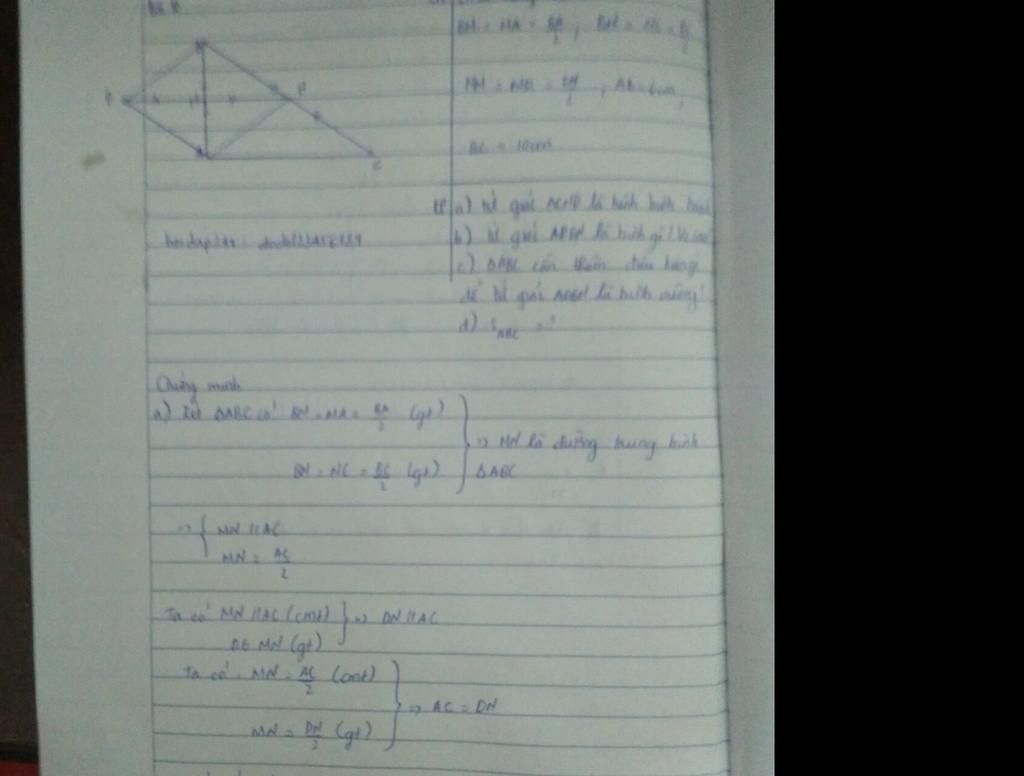 BM = MA = BA/2, BN = NC = BC/2
MN = MD = DN/2, AB = 6cm,
BC = 10cm
a) tứ giác ACND là hình bình
b) tứ giác ADBN là hình gì? Vì sao
c) ΔABC cần thêm điều kiện gì
để tứ giác ADBN là hình vuông?
d) S_ABC = ?
B
D
M
N
A
C
Chứng minh
a) Xét ΔABC có BM = MA = BA/2 (gt)
BN = NC = BC/2 (gt)
=> MN là đường trung bình
ΔABC
=> { MN // AC
MN = AC/2
Ta có MN // AC (cmt) } => DN // AC
D ∈ MN (gt)
Ta có: MN = AC/2 (cmt)
=> AC = DN
MN = DN/2 (gt)